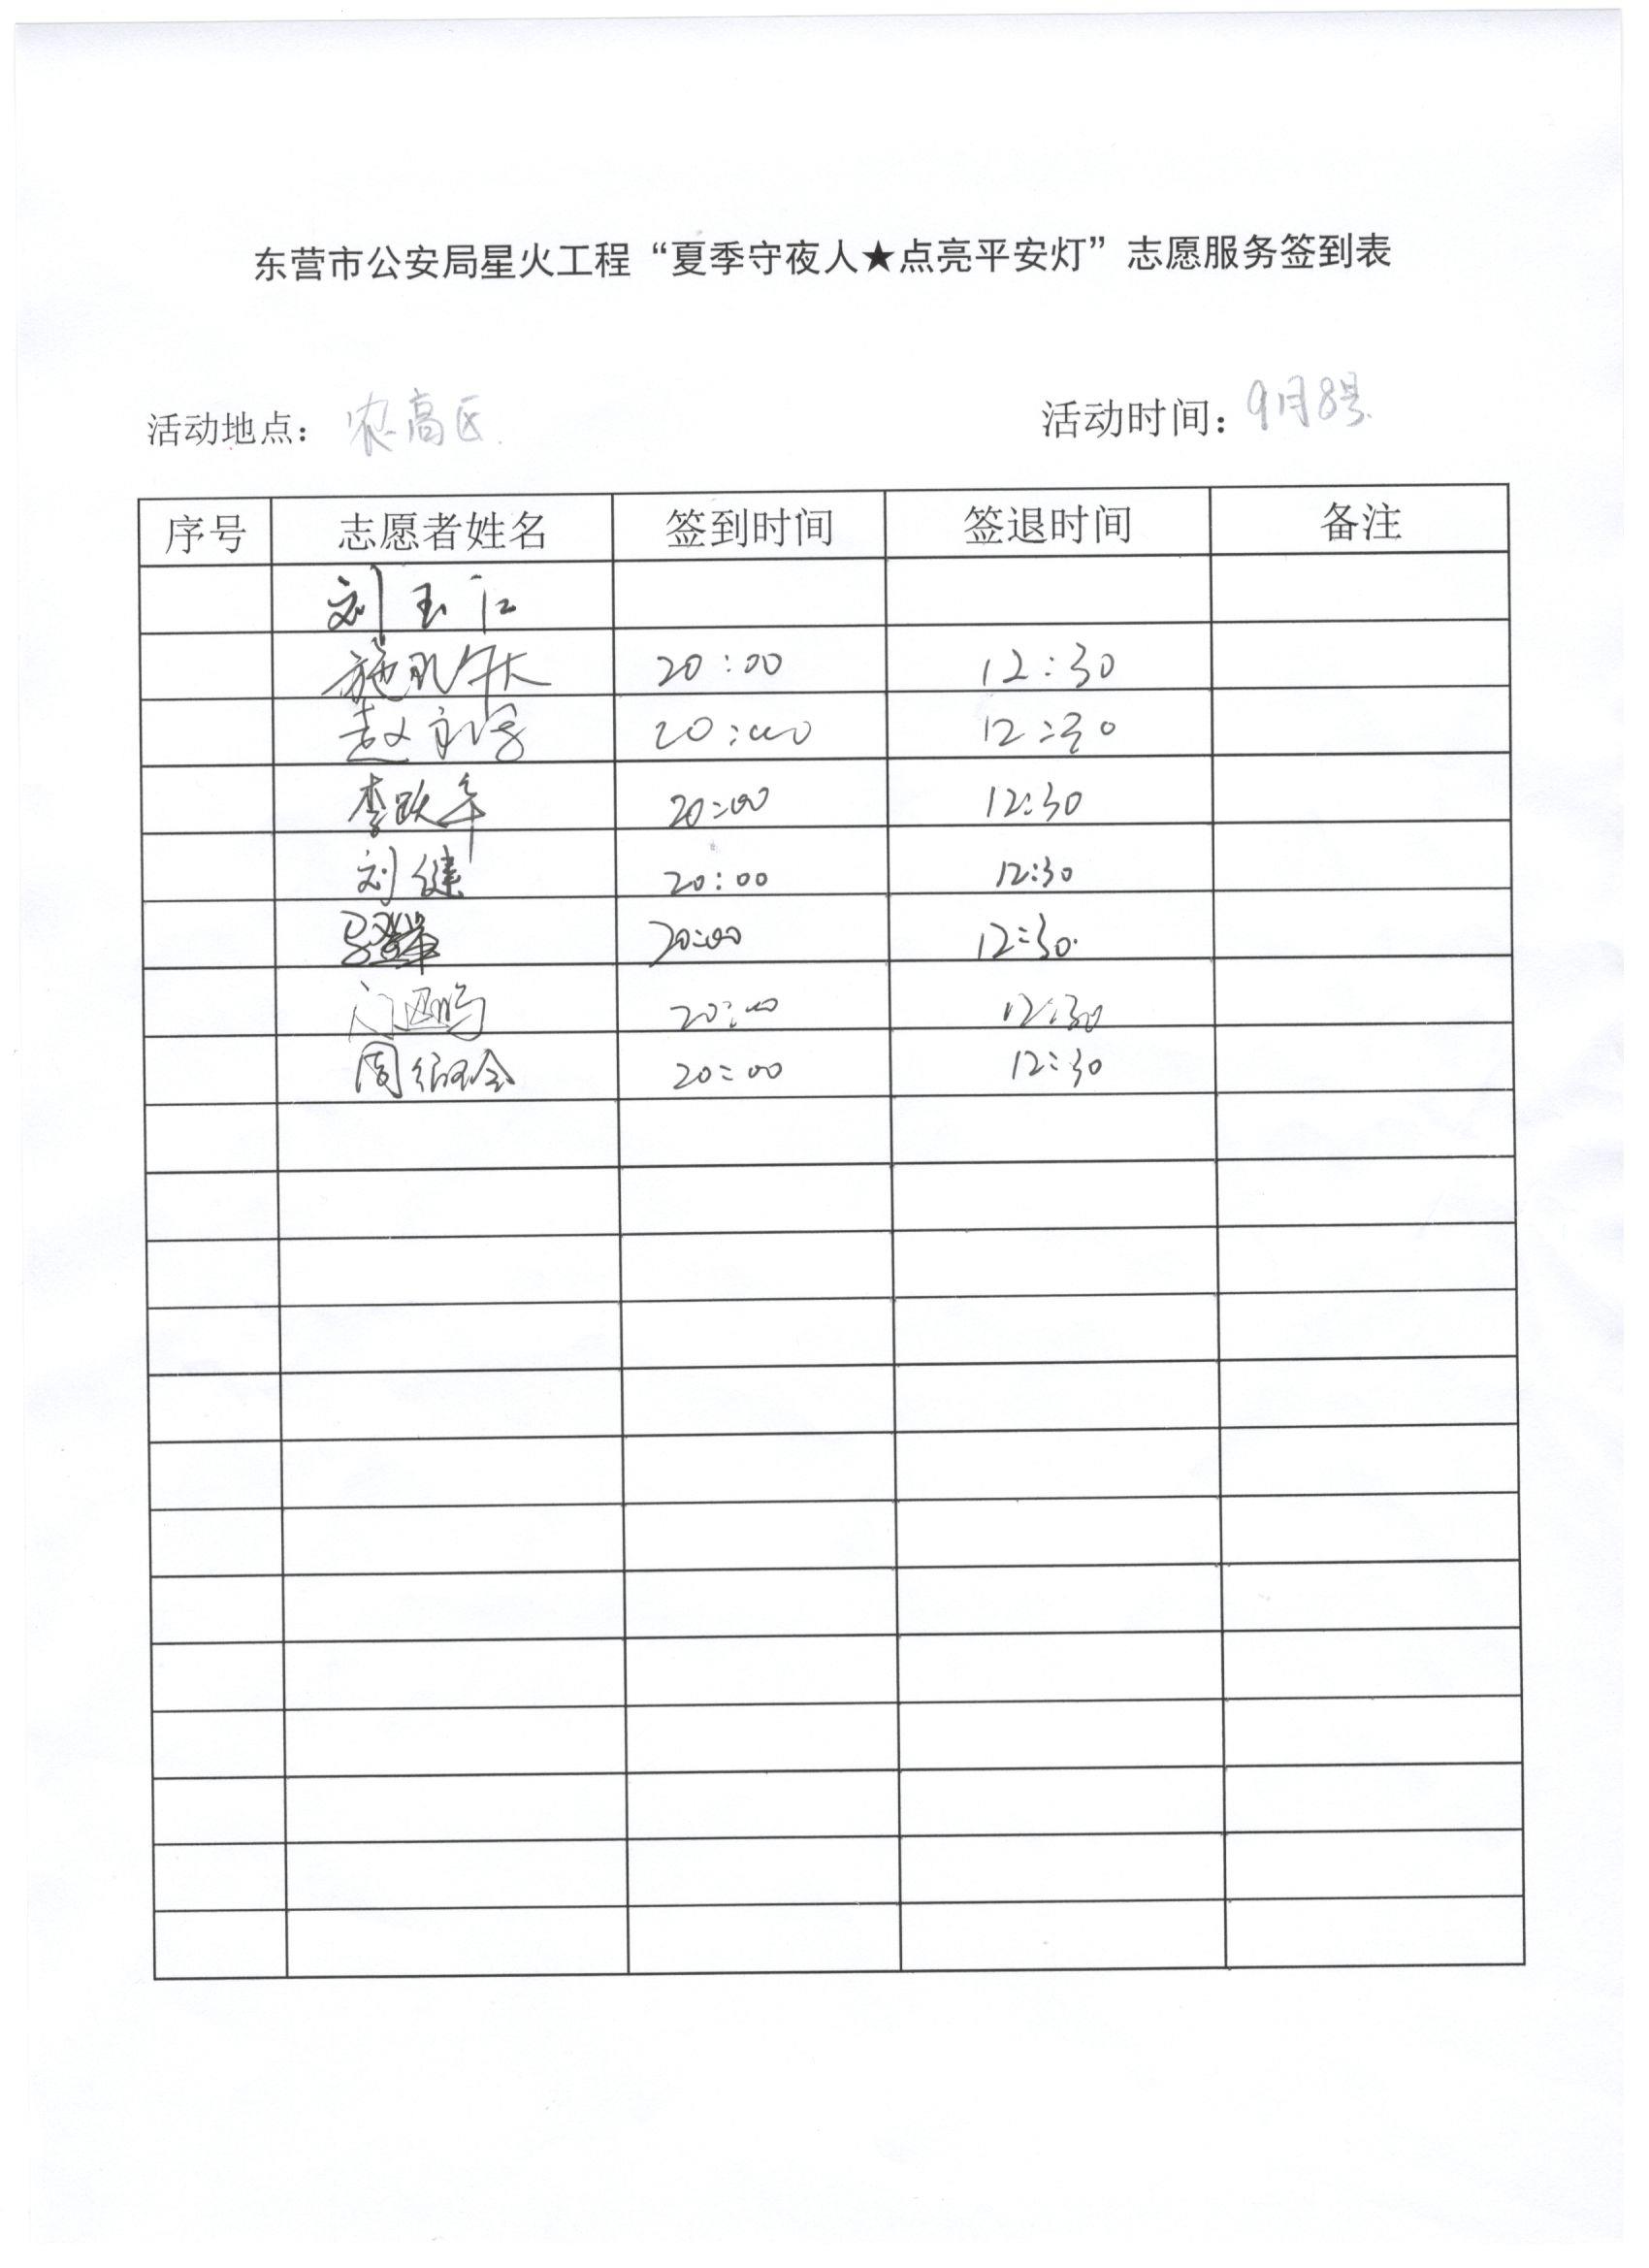 东营市公安局星火工程“夏季守夜人★点亮平安灯”志愿服务签到表
活动地点：农高区 活动时间：9月8号
序号 志愿者姓名 签到时间 签退时间 备注
刘玉仁
20:00 12:30
20:00 12:30
李跃华 20:00 12:30
刘健 20:00 12:30
20:00 12:30
20:00 12:30
周 20:00 12:30